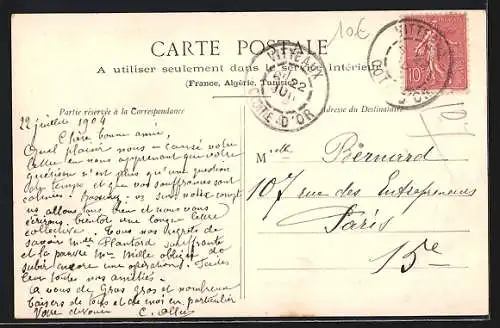 10€
CARTE POSTALE
A utiliser seulement dans le service intérieur
(France, Algérie, Tunisie)
Partie réservée à la Correspondance
Adresse du Destinataire
VITTEAUX
22
JUIL
COTE D'OR
VITTEAUX
COTE D'OR
10
22 juillet 1904
Chère bonne amie,
Quel plaisir nous a causé votre
lettre en nous apprenant que votre
guérison n'est plus qu'une question
de temps et que vos souffrances sont
calmées.
nous allons tous bien et nous vous
écrirons bientôt une longue lettre
collective. Tous nos regrets de
savoir Mme Plantard souffrante
et la pauvre Mme Mille obligée de
subir encore une opération. Faites
leur toutes nos amitiés.
A vous de Gros gros et nombreux
baisers de tous et de moi en particulier
Votre
Melle Bernard
107 rue des Entrepreneurs
Paris
15e